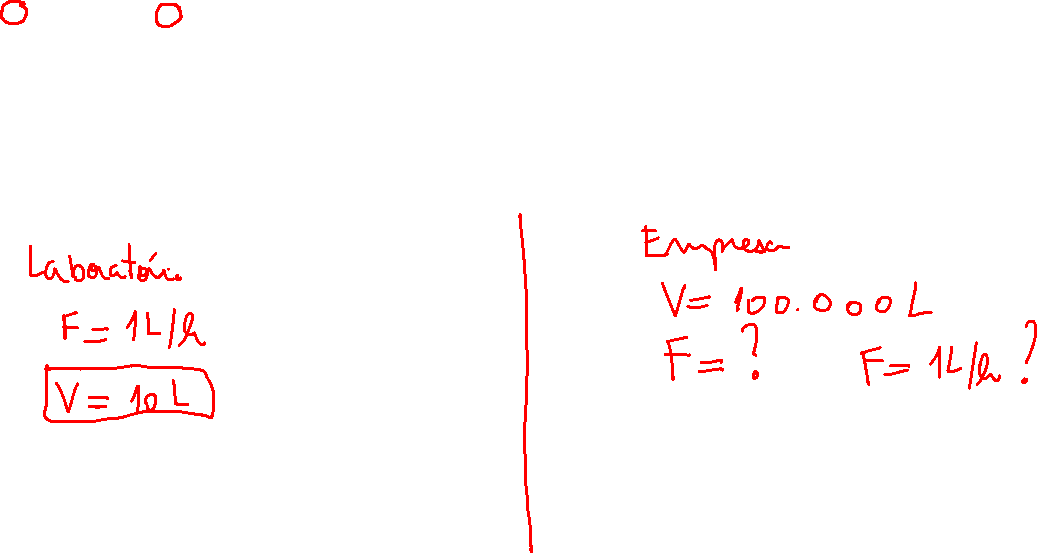 Laboratório
F = 1L/h
V = 10 L
Empresa
V = 100.000 L
F = ? F = 1L/h ?